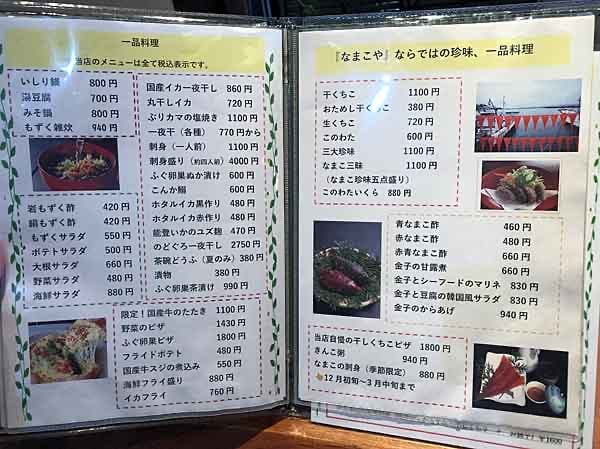 一品料理
当店のメニューは全て税込表示です。
いしり鍋 800円
湯豆腐 700円
みそ鍋 800円
もずく雑炊 940円
国産イカ一夜干し 860円
丸干しイカ 720円
ぶりカマの塩焼き 1100円
一夜干（各種） 770円から
刺身（一人前） 1100円
刺身盛り（約四人前）4000円
ふぐ卵巣ぬか漬け 600円
こんか鰯 600円
ホタルイカ黒作り 480円
ホタルイカ赤作り 480円
能登いかのユズ麹 470円
のどぐろ一夜干し 2750円
茶碗どうふ（夏のみ）380円
漬物 380円
ふぐ卵巣茶漬け 990円
岩もずく酢 420円
絹もずく酢 420円
もずくサラダ 550円
ポテトサラダ 500円
大根サラダ 660円
野菜サラダ 480円
海鮮サラダ 880円
限定！国産牛のたたき 1100円
野菜のピザ 1430円
ふぐ卵巣ピザ 1800円
フライドポテト 480円
国産牛スジの煮込み 550円
海鮮フライ盛り 880円
イカフライ 760円
『なまこや』ならではの珍味、一品料理
干くちこ 1100円
おためし干くちこ 380円
生くちこ 720円
このわた 600円
三大珍味 1100円
なまこ三昧 1100円
（なまこ珍味五点盛り）
このわたいくら 880円
青なまこ酢 460円
赤なまこ酢 480円
赤青なまこ酢 660円
金子の甘露煮 660円
金子とシーフードのマリネ 830円
金子と豆腐の韓国風サラダ 830円
金子のからあげ 940円
当店自慢の干しくちこピザ 1800円
きんこ粥 940円
なまこの刺身（季節限定） 880円
12月初旬～3月中旬まで
￥1600